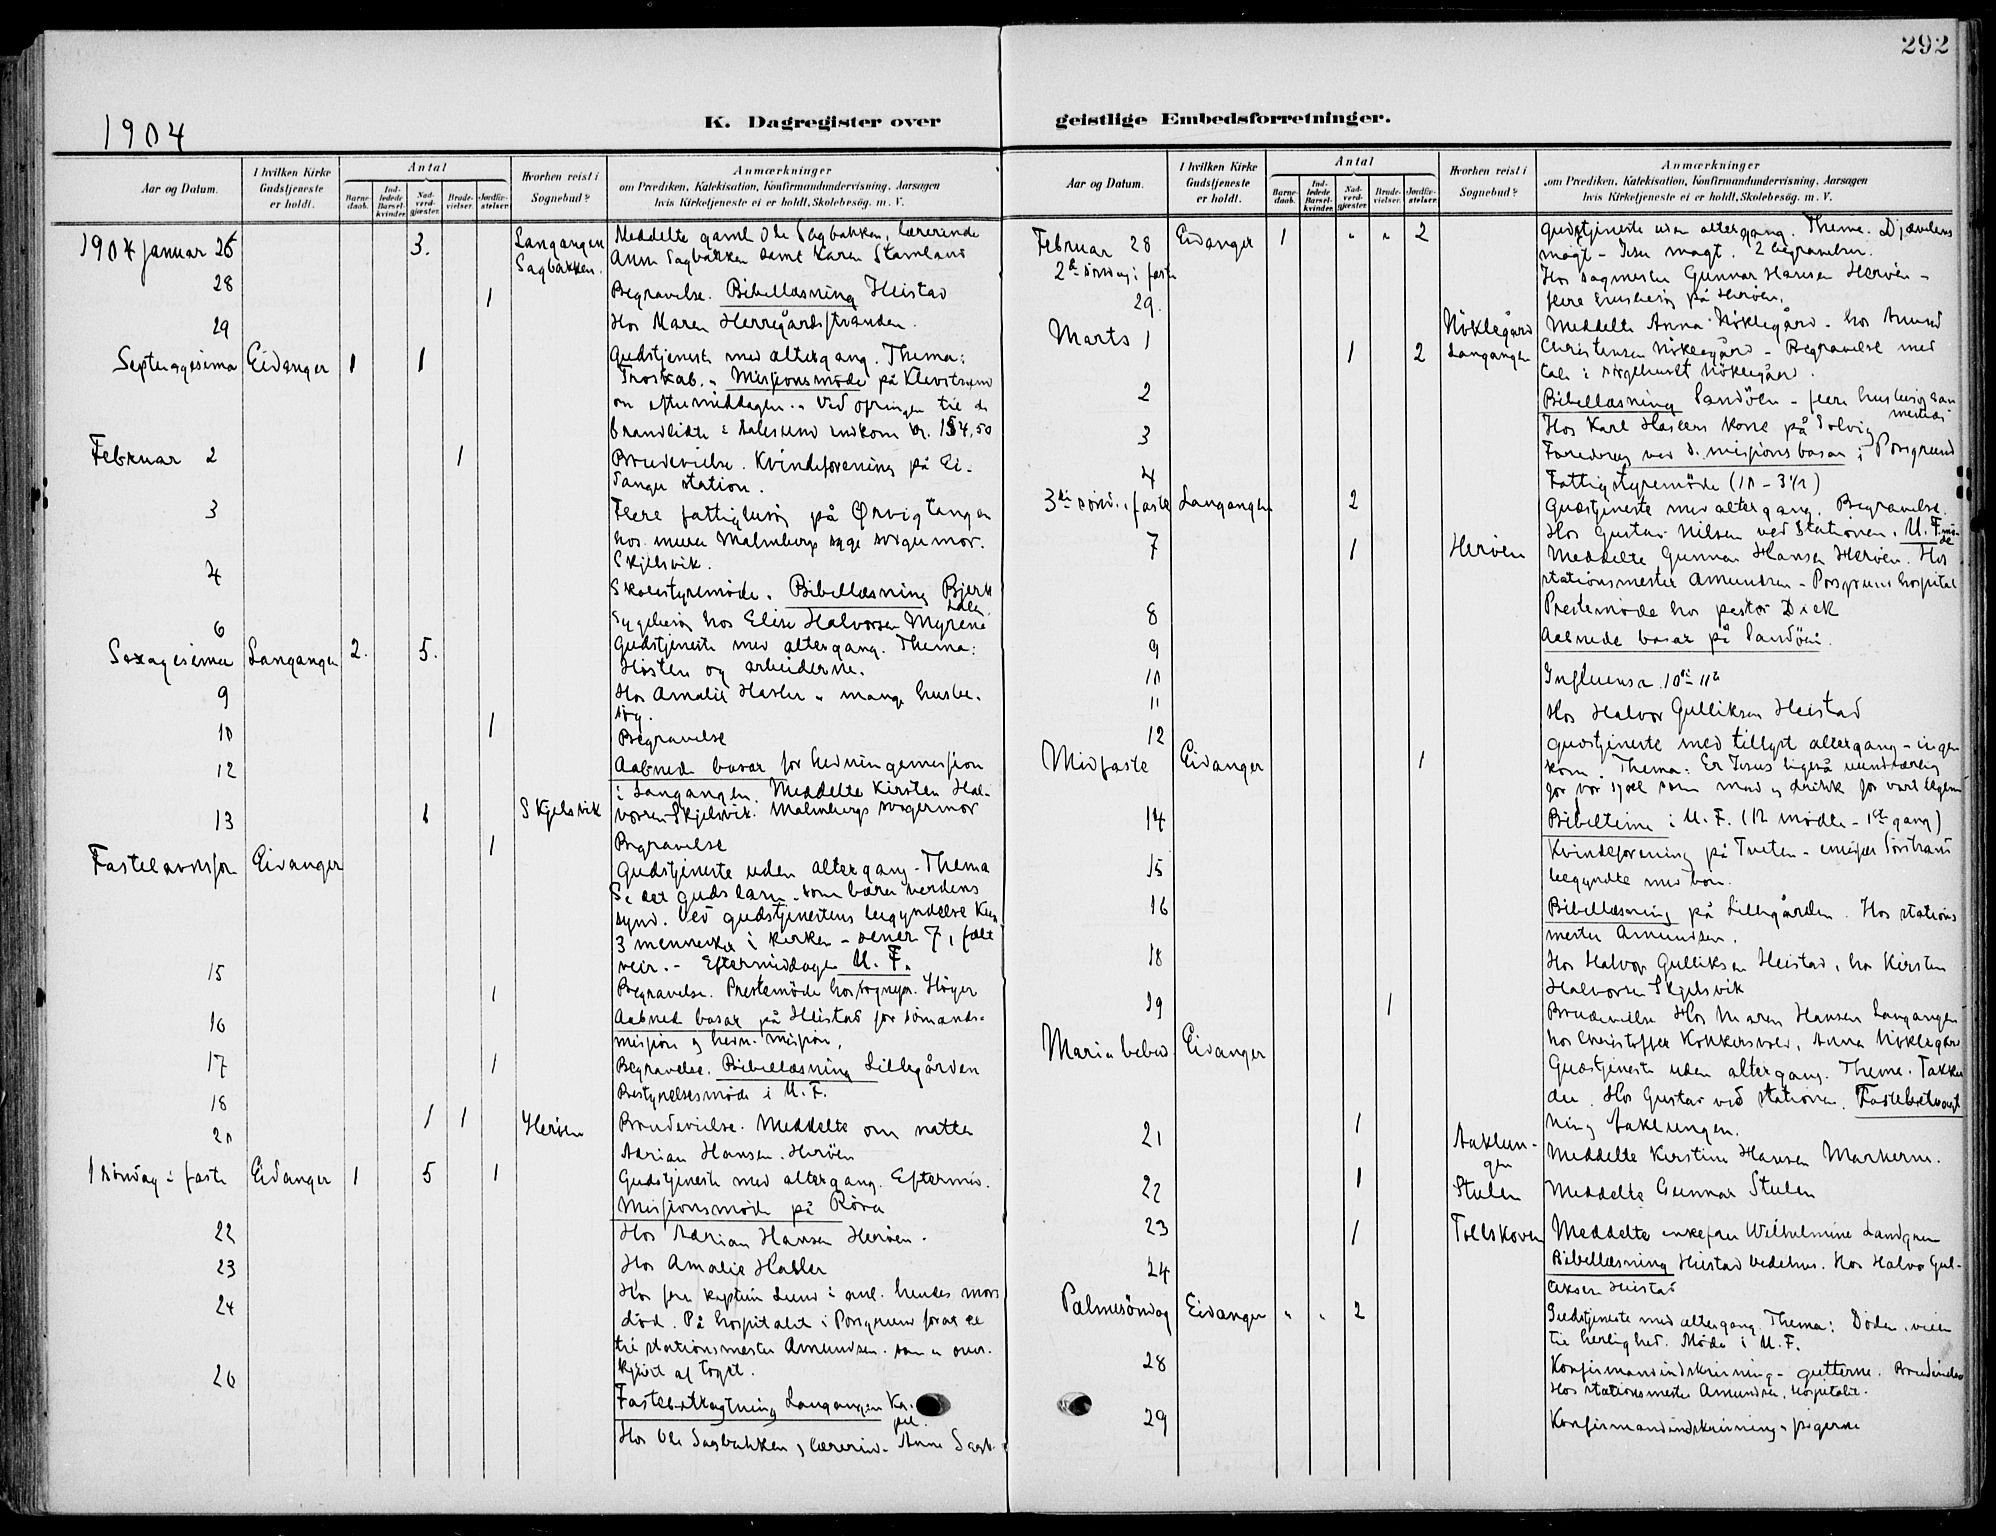 292
1904
K. Dagregister over geistlige Embedsforretninger.
Aar og Datum.
I hvilken Kirke Gudstjeneste er holdt.
Antal
Barnedaab.
Indledede Barselkvinder.
Nadverdgjæster.
Brudevielser.
Jordfæstelser.
Hvorhen reist i Sognebud?
Anmærkninger
om Prædiken, Katekisation, Konfirmandundervisning, Aarsagen
hvis Kirketjeneste ei er holdt, Skolebesøg. m. V.
1904 Januar 26 3. Langangen Meddelte gamle Ole Sagbakken, lærerinde
Sagbakken. Anne Sagbakken samt Karen Stamland
28 1 Begravelse. Bibellæsning Heistad
29 Hos Maren Herregårdsstranden.
Septuagesima Eidanger 1 1 Gudstjeneste med altergang. Thema:
Troskab. - Missionsmöde på Klevstrand
om eftermiddagen. Ved ofringen til de
brandlidte i Aalesund indkom kr. 154,50
Februar 2 1 Brudevielse. Kvindeforening på Ei-
danger station.
3 Flere fattigbesög på Ørvigtangen
hos Malmbergs syge svigermor.
Skjelsvik.
4 Skolestyremöde. Bibellæsning Bjerk
dalen
6 Sygebesög hos Elise Halvorsen Myrene
Sexagesima Langangen 2. 5. Gudstjeneste med altergang. Thema:
Hösten og arbeiderne.
9 Hos Amalie Hasler - mange husbe-
sög.
10 1 Begravelse
12 Aabnede basar for hedningemission
i Langangen. Meddelte Kirsten Hal-
13 1 Skjelsvik vorsen Skjelsvik. Malmbergs svigermor
1 Begravelse
Fastelavnssön Eidanger Gudstjeneste uden altergang - Thema
Se det guds lam, som bærer verdens
synd. Ved gudstjenestens begyndelse kun
3 mennesker i kirken - senere 7,
veir. - Eftermiddagen U. F.
15 1 Begravelse. Prestemöde hos sognepr. Höyer
16 Aabned basar på Heistad for sömands-
mission og hedn. mission.
17 1 Begravelse. Bibellæsning Lillegården
18 Bestyrelsesmöde i U. F.
20 1 1 Heröen Brudevielse. Meddelte om natten
Adrian Hansen Heröen
1 söndag i faste Eidanger 1 5 1 Gudstjeneste med altergang. Eftermid.
Missionsmöde på Röra
22 Hos Adrian Hansen Heröen.
23 Hos Amalie Hasler
24 Hos fru kaptein Lund i anl. hendes mors
död. På hospitalet i Porsgrund for at se
til stationsmester Amundsen. som er over-
kjört af toget.
26 Fastebetragtning Langangen Ka-
pel.
Hos Ole Sagbakken, lærerind. Anne Sagb.
Aar og Datum.
I hvilken Kirke Gudstjeneste er holdt.
Antal
Barnedaab.
Indledede Barselkvinder.
Nadverdgjæster.
Brudevielser.
Jordfæstelser.
Hvorhen reist i Sognebud?
Anmærkninger
om Prædiken, Katekisation, Konfirmandundervisning, Aarsagen
hvis Kirketjeneste ei er holdt, Skolebesøg. m. V.
Februar 28 Eidanger 1 " " 2 Gudstjeneste uden altergang. Thema. Djævelens
2den söndag i faste magt - Jesu magt. 2 begravelser.
Hos dagmester Gunnar Hansen Heröen -
29. flere husbesög på Heröen.
Marts 1 Nöklegård Meddelte Anna Nöklegård - hos Amund
1 2 Langangen Christensen Nöklegård - Begravelse med
tale i sörgehuset Nöklegård.
2 Bibellæsning Sandöen - flere husbesög
3 Hos Karl Haslers kone på Solvig
Foredrag ved d. missionsbasar i Porsgrund
4 Fattigstyremöde (10 - 3 1/2)
3die sönd. i faste Langangen 2 Gudstjeneste med altergang. Begravelse.
Hos Gustav Nilsen ved Stationen. U. F. mö-
de
7 1 Heröen Meddelte Gunnar Hansen Heröen. Hos
stationsmester Amundsen - Porsgrund hospital
8 Prestemöde hos pastor Dick
9 Aabnede basar på Sandöen.
10 Influensa 10de - 11te
11 Hos Halvor Gulliksen Heistad
12 Gudstjeneste med tillyst altergang - ingen
Midfaste Eidanger 1 kom. Thema: Er Jesus ligeså uundværlig
for vor sjæl som mad og drikke for vort legem
14 Bibeltime i U. F. (12 mödte - 1ste gang)
15 Kvindeforening på Tveten -
begyndte med bön.
16 Bibellæsning på Lillegården. Hos stations
mester Amundsen.
18 Hos Halvor Gulliksen Heistad, hos Kirsten
Halvorsen Skjelsvik
19 1 Brudevielse Hos Maren Hansen Langangen
Maria bebud. Eidanger hos Christoffer Kokkersvold, Anna Nöklegård
Gudstjeneste uden altergang. Thema. Takker
du. Hos Gustav ved stationen. Fastebetragt
ning Aaklungen.
21 1 Aaklun-
gen Meddelte Kirstine Hansen Markerne.
22 1 Stulen Meddelte Gunnar Stulen
23 1 Tollskoven Meddelte enkefru Wilhelmine Landgren
24 Bibellæsning Heistad bedehus. Hos Halvor Gul-
liksen Heistad
Palmesöndag Eidanger " " 2 Gudstjeneste med altergang. Thema: Döden, veien
til herlighed. Möde i U. F.
28 Konfirmandindskrivning - gutterne. Brudevielse
Hos stationsmester Amundsen, hospitalet.
29 Konfirmandindskrivning - pigerne